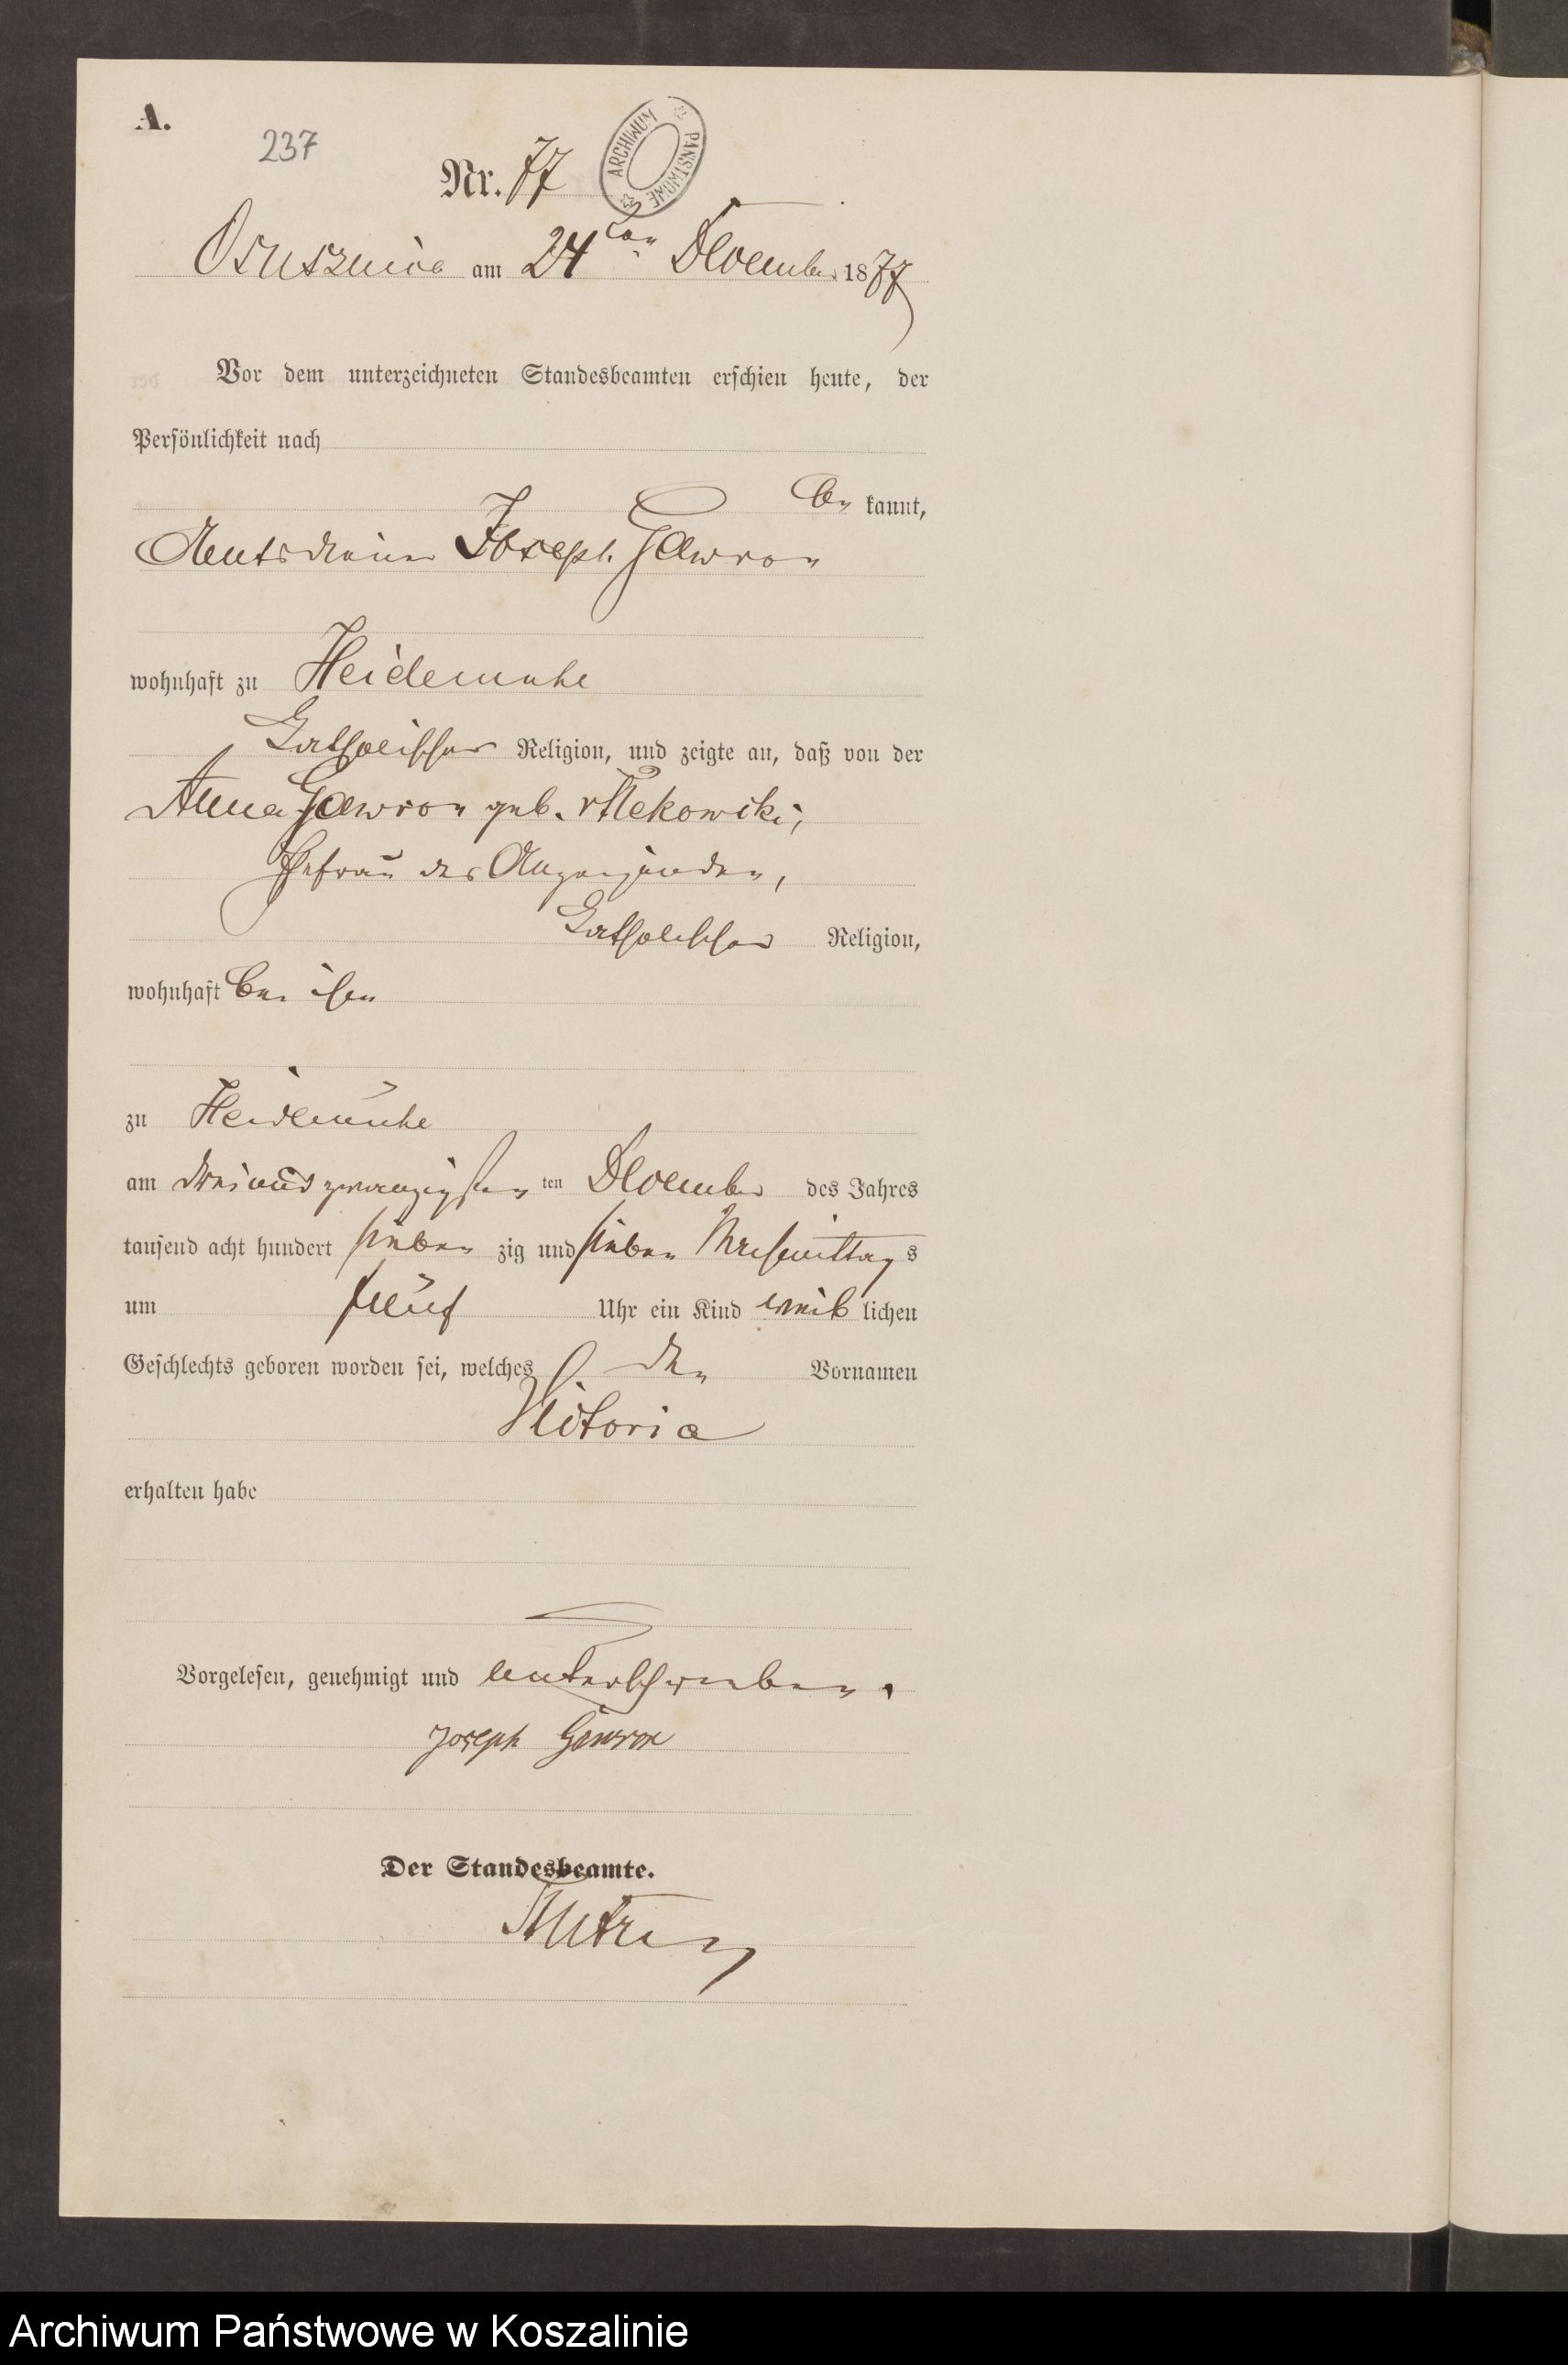 A.
237
Nr. 77
ARCHIWUM PAŃSTWOWE
Osusznica am 24ten December 1877
Vor dem unterzeichneten Standesbeamten erschien heute, der
Persönlichkeit nach
be kannt,
Amtsdiener Joseph Gawron
wohnhaft zu Heidemühe
Catholischer Religion, und zeigte an, daß von der
Anna Gawron geb.
Ehefrau des Anzeigenden,
Catholischer Religion,
wohnhaft bei ihm
zu Heidemühe
am dreiundzwanzigsten ten December des Jahres
tausend acht hundert sieben zig und sieben Nachmittag s
um fünf Uhr ein Kind weib lichen
Geschlechts geboren worden sei, welches den Vornamen
Victoria
erhalten habe
Vorgelesen, genehmigt und unterschrieben.
Joseph Gawron
Der Standesbeamte.
Archiwum Państwowe w Koszalinie